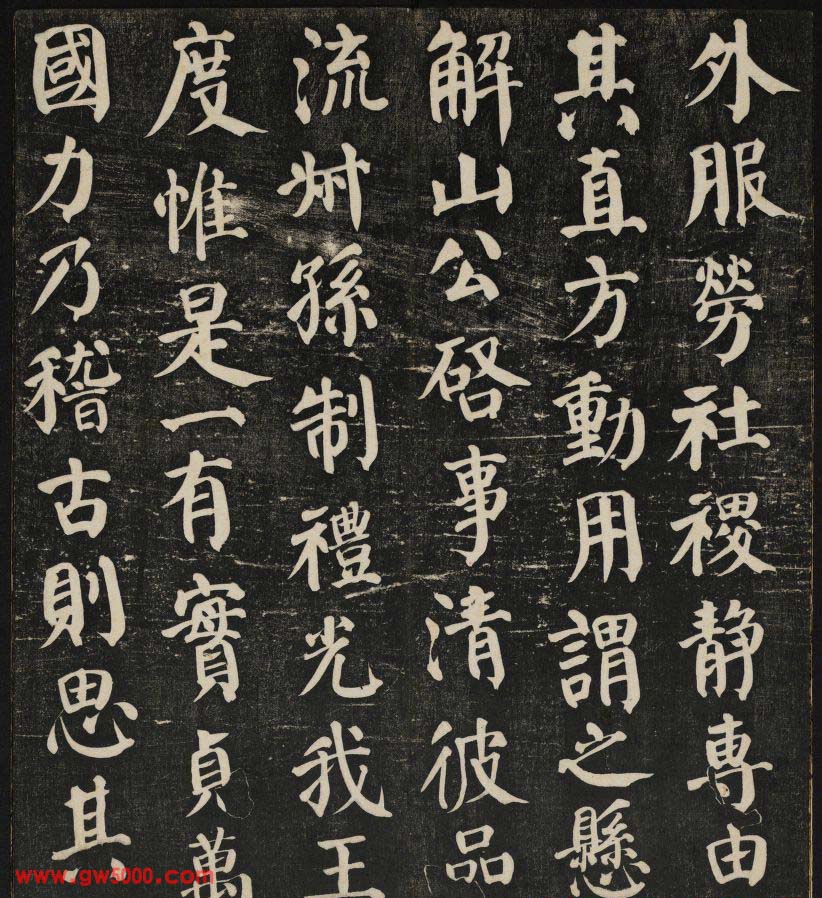 外服勞社稷静專由
其直方動用謂之懸
解山公啓事清彼品
流叔孫制禮光我王
度惟是一有實貞萬
國力乃稽古則思其
www.gw5000.com